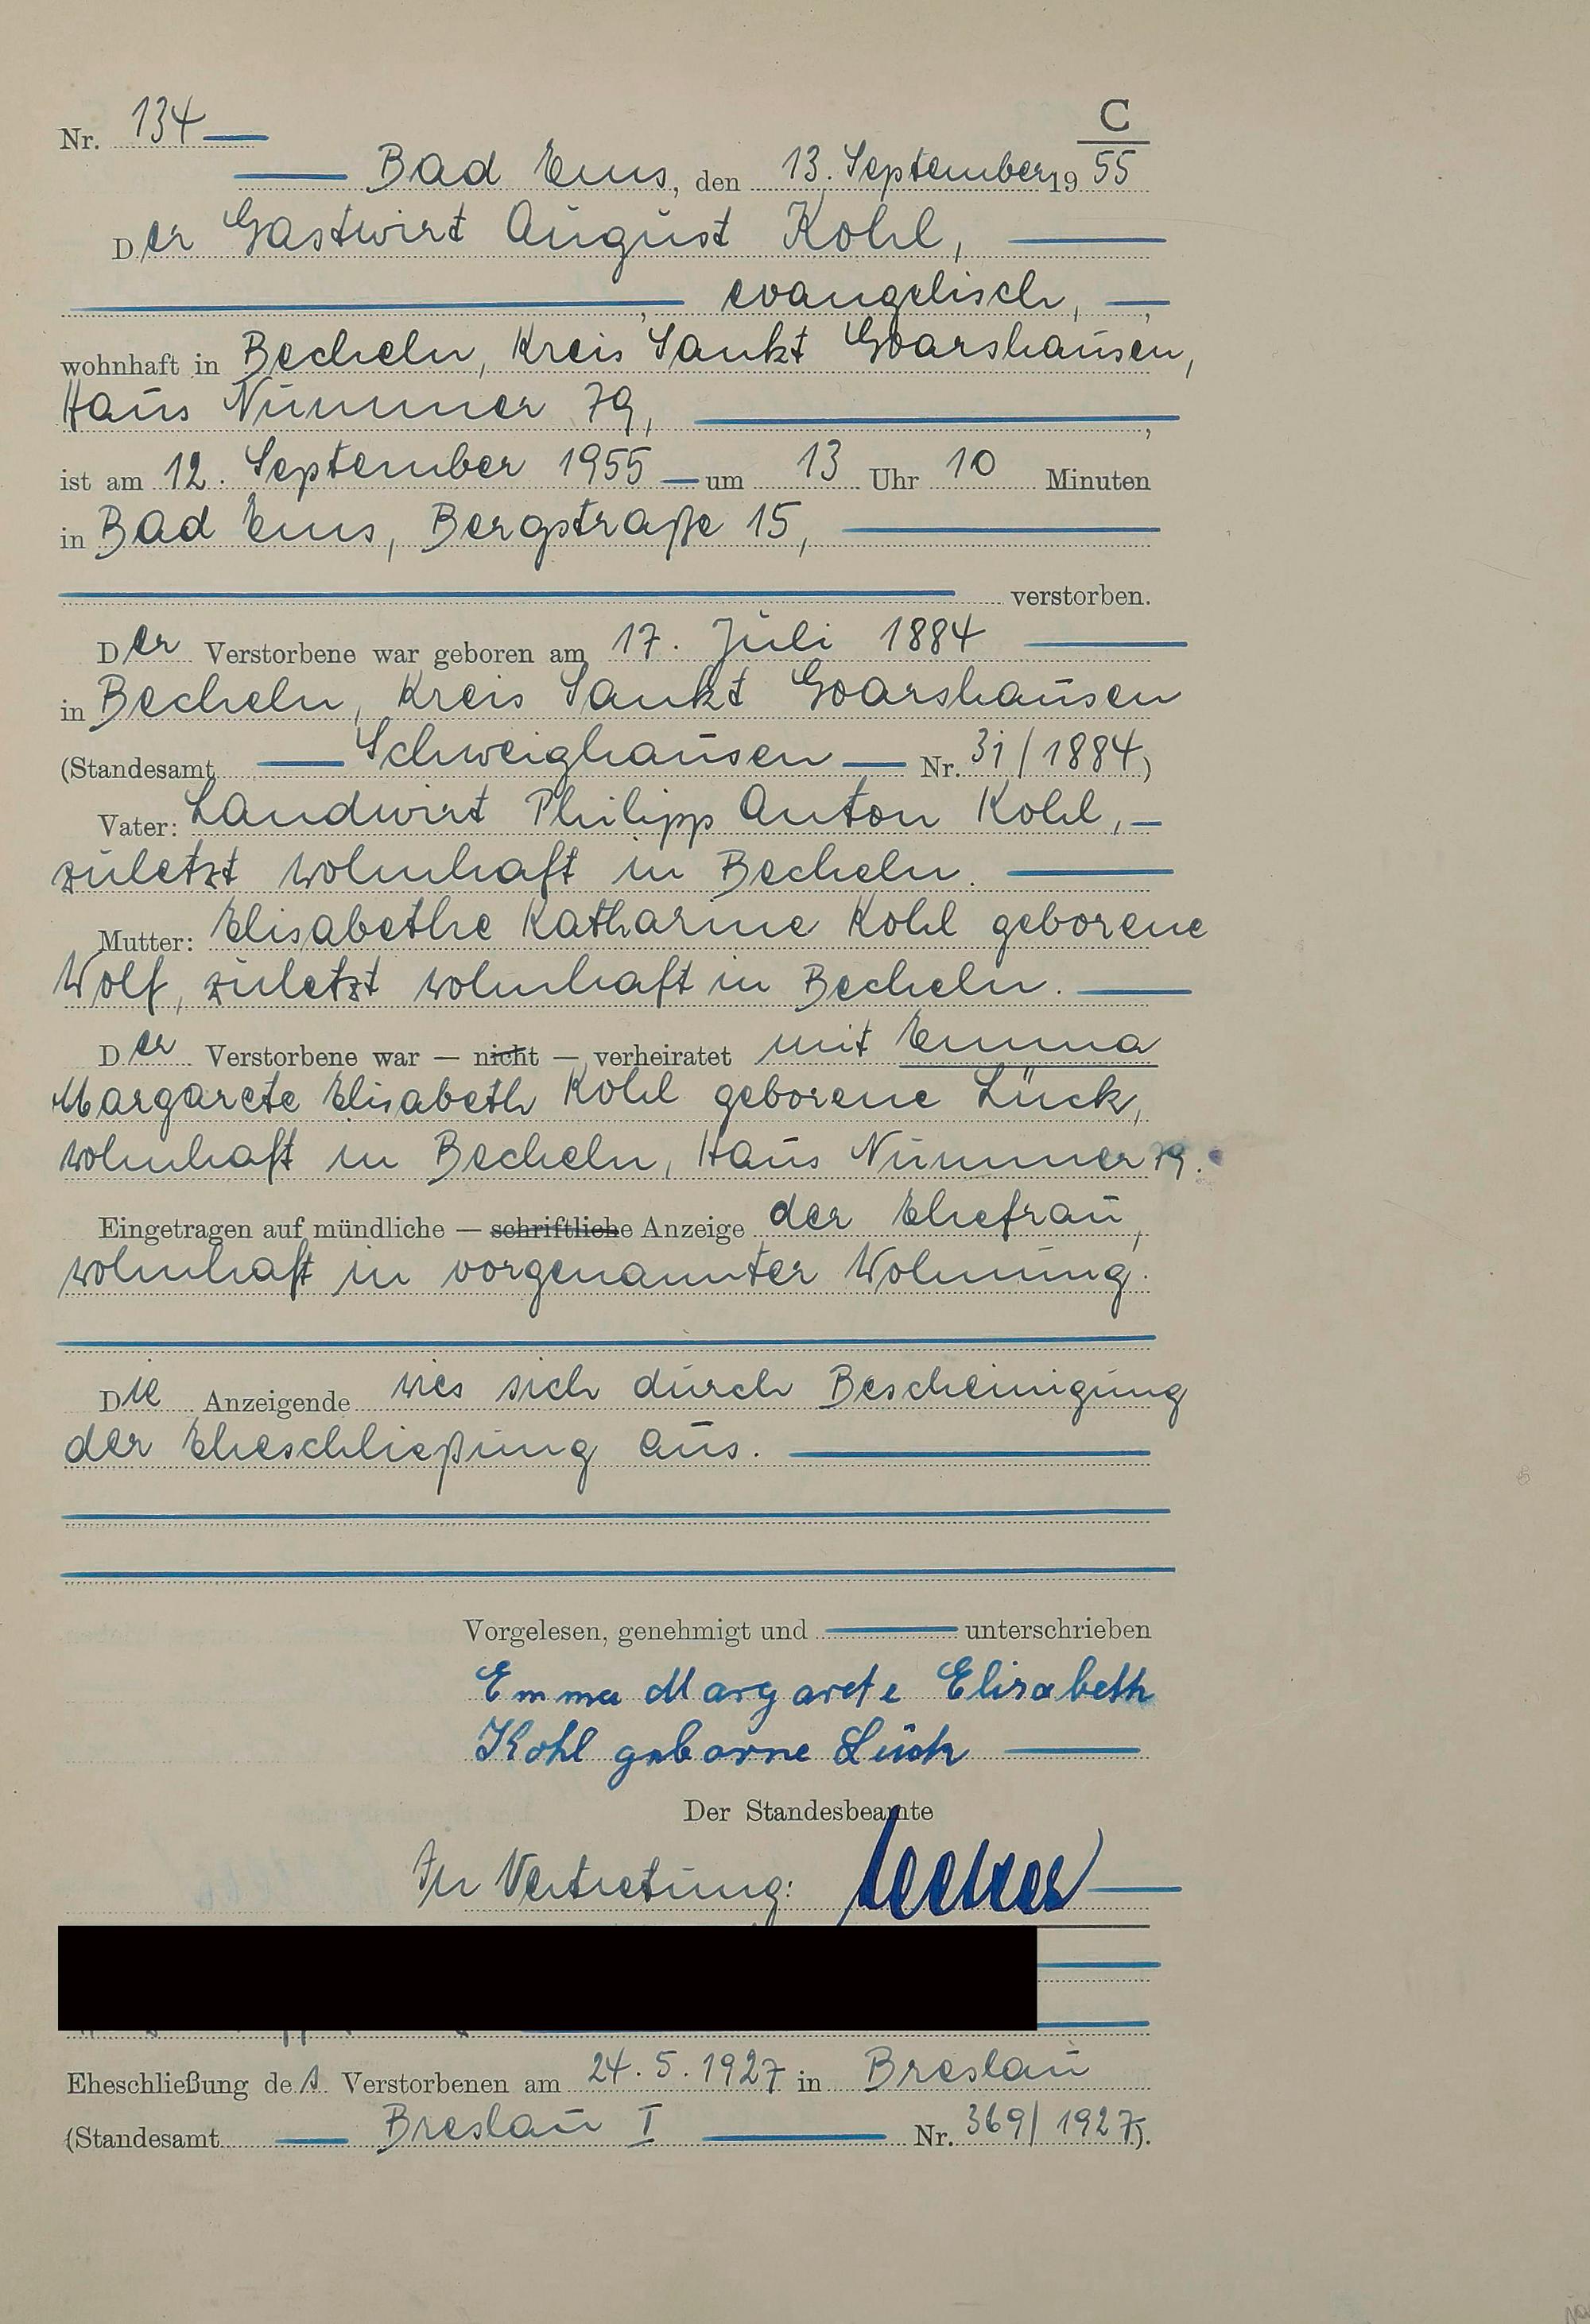 C
Nr. 134
Bad Ems, den 13. September 1955
Der Gastwirt August Kohl,
, evangelisch, ,
wohnhaft in Becheln, Kreis Sankt Goarshausen,
Haus Nummer 79, ,
ist am 12. September 1955 um 13 Uhr 10 Minuten
in Bad Ems, Bergstraße 15,
verstorben.
Der Verstorbene war geboren am 17. Juli 1884
in Becheln, Kreis Sankt Goarshausen
(Standesamt Schweighausen Nr. 31/1884)
Vater: Landwirt Philipp Anton Kohl,
zuletzt wohnhaft in Becheln.
Mutter: Elisabethe Katharine Kohl geborene
Wolf, zuletzt wohnhaft in Becheln.
Der Verstorbene war — nicht — verheiratet mit Emma
Margarete Elisabeth Kohl geborene Lück,
wohnhaft in Becheln, Haus Nummer 79.
Eingetragen auf mündliche — schriftliche Anzeige der Ehefrau,
wohnhaft in vorgenannter Wohnung.
Die Anzeigende wies sich durch Bescheinigung
der Eheschließung aus.
Vorgelesen, genehmigt und unterschrieben
Emma Margarete Elisabeth
Kohl geborne Lück
Der Standesbeamte
In Vertretung:
Eheschließung des Verstorbenen am 24.5.1927 in Breslau
(Standesamt Breslau I Nr. 369/1927).